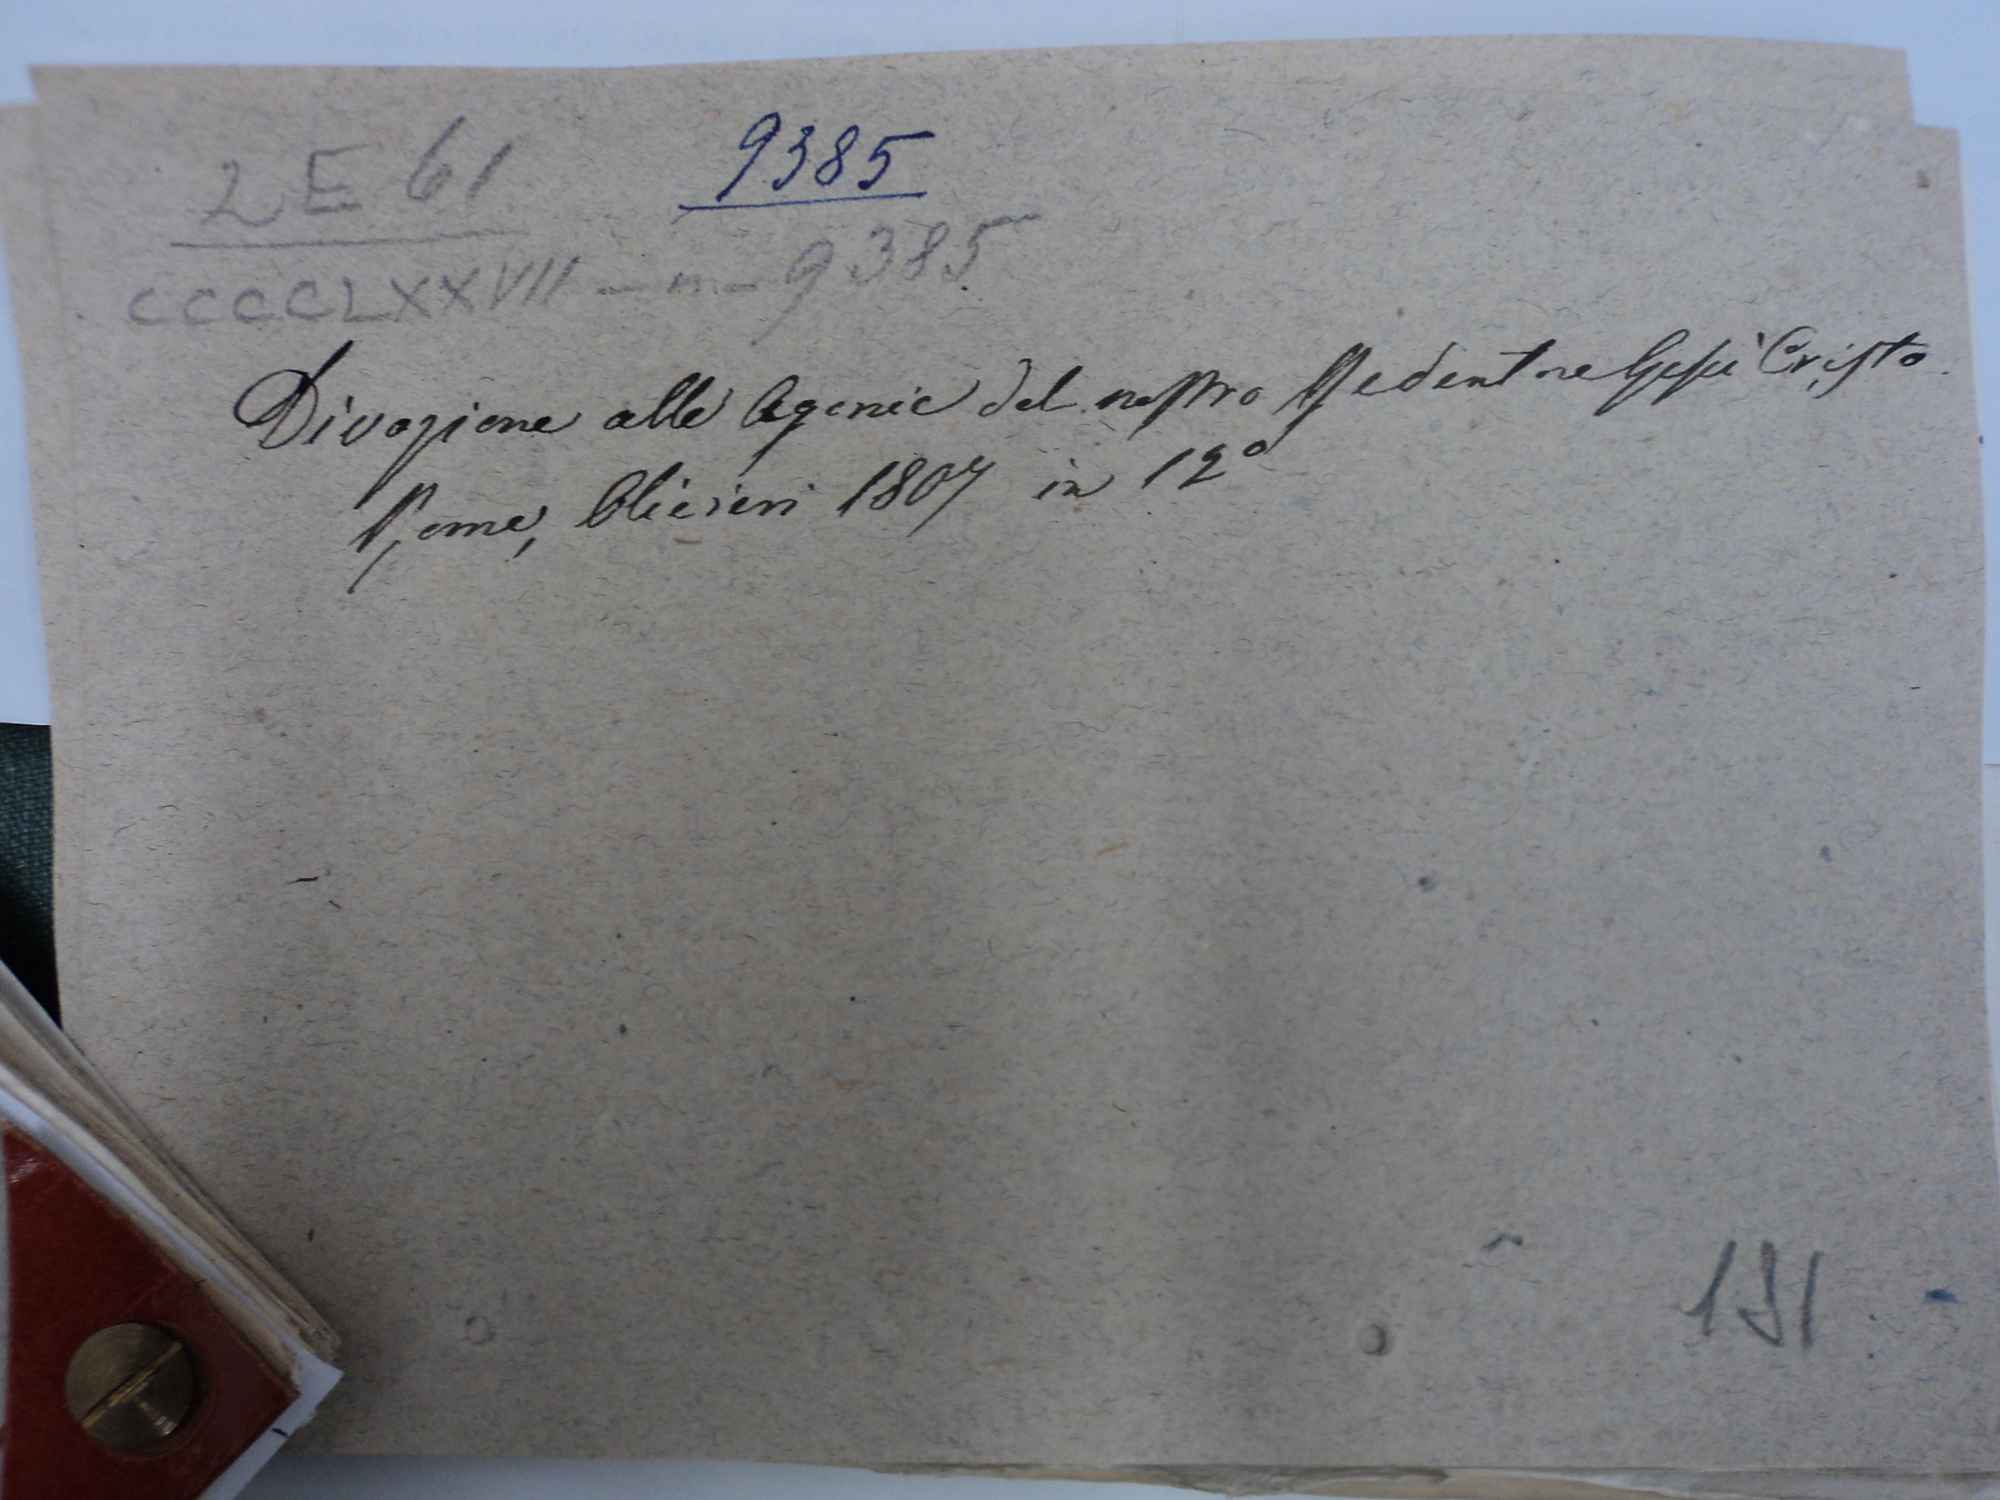 2 E 61 9385
CCCCLXXVII - m - 9385
Divozione alle Agonie del nostro Redentore Gesù Cristo.
Roma, Olivieri 1807 in 12º
191